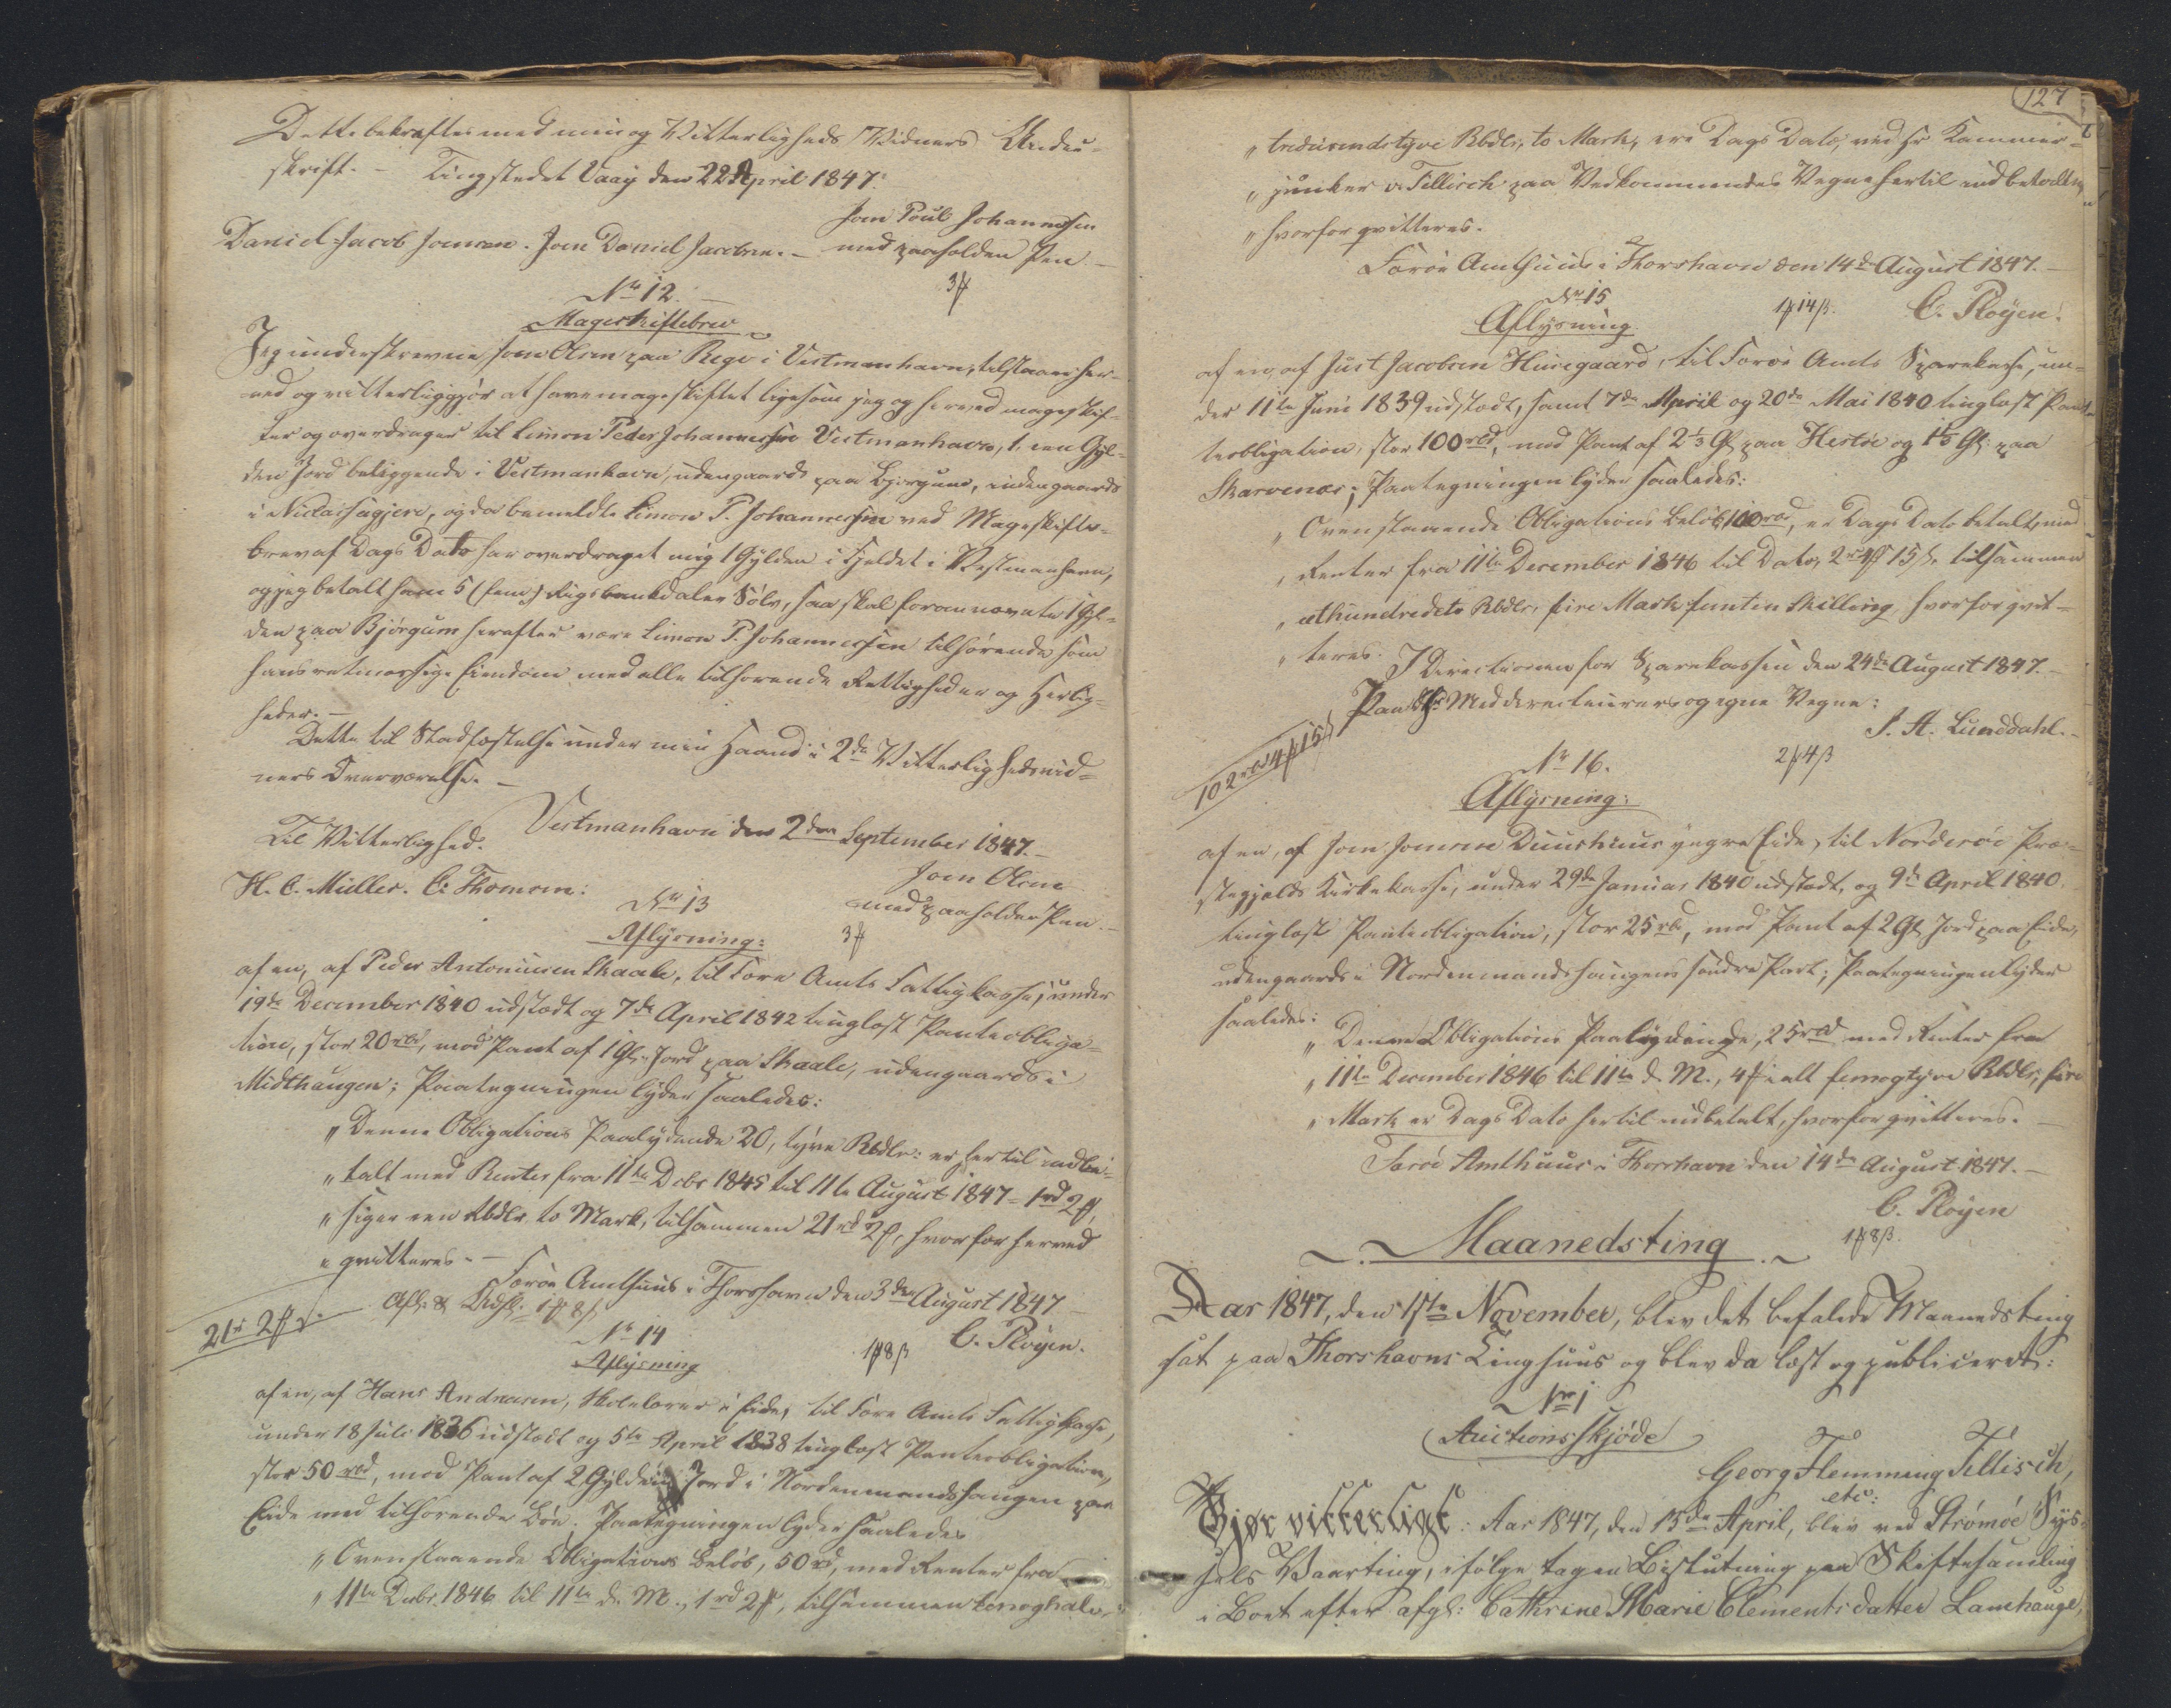 Dette bekræftes med min og Vitterligheds Vidners Under-
skrift. – Tingstedet Vaag den 22 April 1847.
Joen Poul Johannessen
Daniel Jacob Joensen. Joen Daniel Jacobsen. – med paaholden Pen –
No 12. 3 ₻
Mageskiftebrev
Jeg underskrevne Joen Olsen paa Rego i Vestmanhavn, tilstaaer her-
ved og vitterliggjør at have mageskiftet ligesom jeg og herved mageskif-
ter og overdrager til Simon Peder Johannessen Vestmanhavn, 1, een Gyl-
den Jord beliggende i Vestmanhavn, udengaards paa Bjørgum, indengaards
i Niclaisagjere, og da bemeldte Simon P. Johannessen ved Mageskifte-
brev af Dags Dato har overdraget mig 1 Gylden i Fjeldet i Vestmanhavn,
og jeg betalt ham 5 (fem) Rigsbankdaler Sølv, saa skal forommeldte 1 Gyl-
den paa Bjørgum herefter være Simon P. Johannessen tilhørende som
hans retmæssige Eiendom med alle tilhørende Rettigheder og Herlig-
heder. –
Dette til Stadfæstelse under min Haand i 2de Vitterlighedsvid-
ners Overværelse. –
Vestmanhavn den 2den September 1847. –
Til Vitterlighed.
Joen Olsen
H. C. Müller. C. Thomsen:
No 13 med paaholden Pen. –
Aflysning: 3 ₻
af en, af Peder Antoniussen Skaale, til Færø Amts Fattigkasse, under
19de December 1840 udstædt og 7de April 1842 tinglæst Pantobliga-
tion, stor 20 rbd, mod Pant af 1 Gl. Jord paa Skaale, udengaards i
Midthaugen; Paategningen lyder saaledes:
„ Denne Obligations Paalydende 20, tyve Rbdlr: er hertil indbe-
„ talt med Renter fra 11te Dcbr 1845 til 11te August 1847 = 1 rd 2 ₻,
„ siger een Rbdlr to Mark, tilsammen 21 rd 2 ₻, hvorfor herved
„ qvitteres. –
Færøe Amthuus i Thorshavn den 3die August 1847 –
21 rd 2 ₻ s. Afl: & Udsl. 1 ₻ 8 ß
No 14 C. Pløyen.
Aflysning 1 ₻ 8 ß
af en, af Hans Andreasen, Skolelærer i Eide, til Færø Amts Fattigkasse,
under 18 Juli 1836 udstædt og 5te April 1838 tinglæst Panteobligation,
stor 50 rbd, mod Pant af 2 Gylden Jord i Nordenmandshaugen paa
Eide med tilhørende Bøe. Paategningen lyder saaledes
„ Ovenstaaende Obligations Beløb, 50 rd, med Renter fra
„ 11te Decbr. 1846 til 11te d. M., 1 rd 2 ₻, tilsammen
127
„ Rbdlr, to Mark, ere Dags Dato, ved Hr Kammer-
„ junker v. Tillisch paa Vedkommendes Vegne hertil indbetalte,
„ hvorfor qvitteres.
Færøe Amthuus i Thorshavn den 14de August 1847. –
No 15 1 ₻ 14 ß. C. Pløyen.
Aflysning
af en, af Just Jacobsen Husegaard, til Færøe Amts Sparekasse, un-
der 11te Juni 1839 udstædt, samt 7de April og 20de Mai 1840 tinglæst Pan-
teobligation, stor 100 rbd, mod Pant af 2 1/3 Gl. paa Hestøe og 1 1/2 Gl: paa
Skarvenæs; Paategningen lyder saaledes:
„ Ovenstaaende Obligations Beløb 100 rbd, er Dags Dato betalt, med
„ Renter fra 11te December 1846 til Dato, 2 rd 4 ₻ 15 ß. tilsammen
„ ethundredeto Rbdlr, fire Mark femten Skilling, hvorfor qvit-
„ teres.
I Directionen for Sparekassen den 24de August 1847. –
Paa Meddirecteurers og egne Vegne:
J. A. Lunddahl. –
102 rbd 4 ₻ 15 ß
No 16. 2 ₻ 4 ß
Aflysning:
af en, af Joen Joensen Duushuus yngre Eide, til Norderøe Præ-
stegjelds Kirkekasse, under 29de Januar 1840 udstædt, og 9de April 1840
tinglæst Panteobligation, stor 25 rbd, mod Pant af 2 Gl. Jord paa Eide,
udengaards i Nordenmandshaugens søndre Part; Paategningen lyder
saaledes:
„ Denne Obligations Paalydende, 25 rbd med Renter fra
„ 11te December 1846 til 11te d. M., 4 ₻ ialt femogtyve Rbdlr, fire
„ Mark er Dags Dato hertil indbetalt, hvorfor qvitteres. –
Færøe Amthuus i Thorshavn den 14de August 1847. –
C. Pløyen
Maanedsting 1 ₻ 8 ß.
Aar 1847, den 1ste November, blev det befalede Maanedsting
sat paa Thorshavns Tinghuus og blev da læst og publiceret:
No 1
Auctionsskjøde
Georg Flemming Tillisch,
etc:
Gjør vitterligt: Aar 1847, den 15de April, blev ved Strømøe Sys-
sels Vaarting, ifølge tagen Beslutning paa Skiftesamling
i Boet efter afg: Cathrine Marie Clementsdatter Lamhauge,